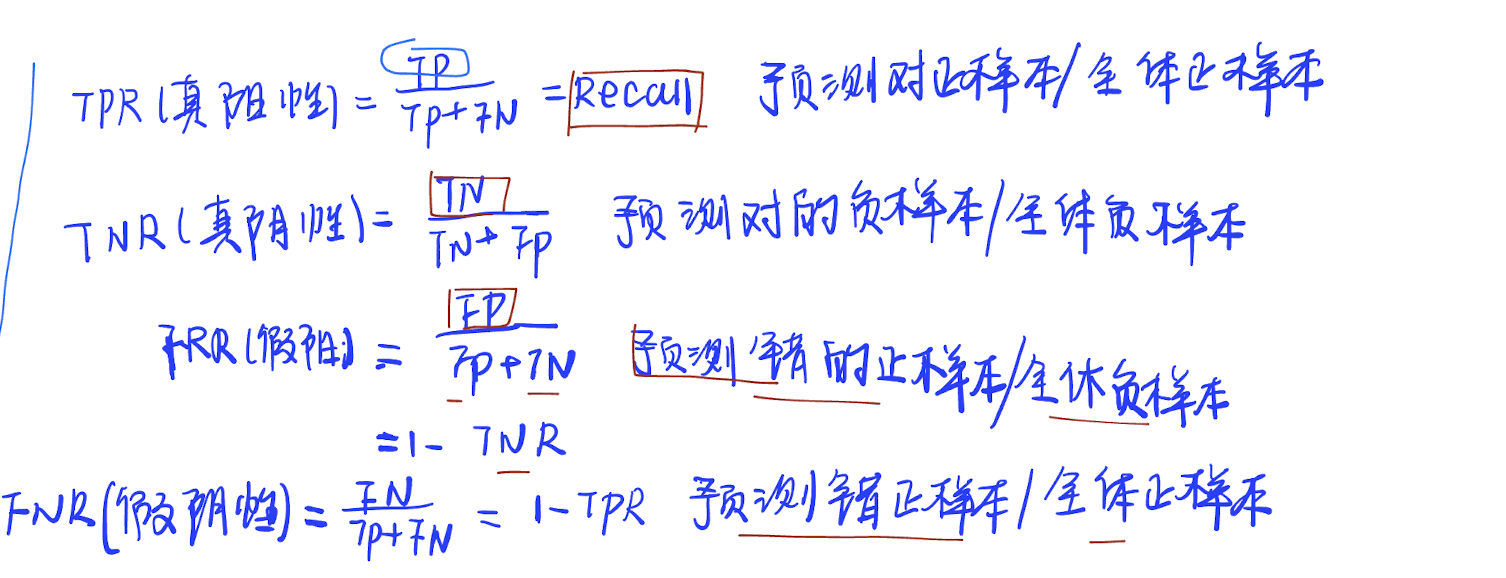 TPR(真阳性) = TP / TP+FN = Recall 预测对正样本/全体正样本
TNR(真阴性) = TN / TN+FP 预测对的负样本/全体负样本
FPR(假阳) = FP / FP+TN 预测错的正样本/全体负样本
=1- TNR
FNR(假阴性) = FN / TP+FN = 1-TPR 预测错正样本/全体正样本